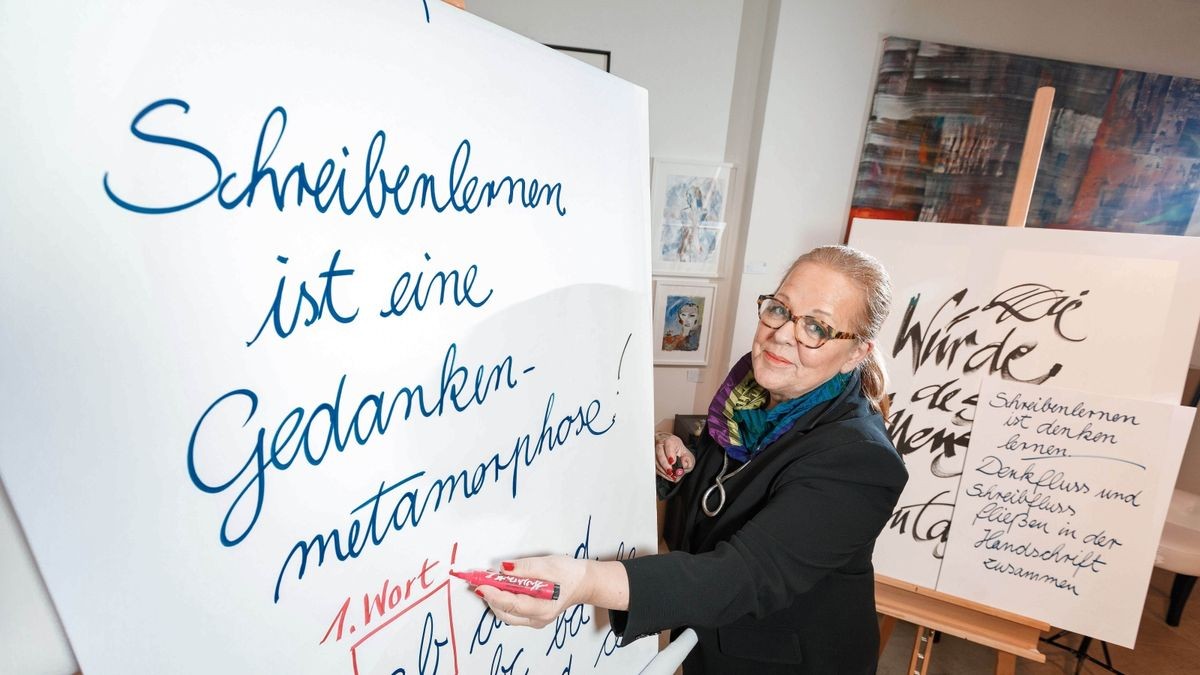 Schreibenlernen
ist eine
Gedanken-
metamorphose!
1. Wort!
Die
Würde
des
Schreibenlernen
ist denken
lernen
Denkfluss und
Schreibfluss
fließen in der
Handschrift
zusammen